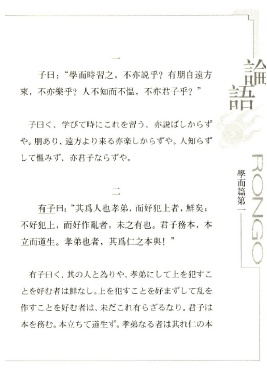 論語
RONGO
學而篇第一
一
子曰:“學而時習之,不亦説乎?有朋自遠方
來,不亦樂乎?人不知而不慍,不亦君子乎?”
子曰く、学びて時にこれを習う、亦説ばしからず
や。朋あり、遠方より来る亦楽しからずや。人知らず
して慍みず、亦君子ならずや。
二
有子曰:“其爲人也孝弟,而好犯上者,鮮矣;
不好犯上,而好作亂者,未之有也。君子務本,
本立而道生。孝弟也者,其爲仁之本與!”
有子曰く、其の人と為りや、孝弟にして上を犯すこ
とを好む者は鮮なし。上を犯すことを好まずして乱を
作すことを好む者は、未だこれ有らざるなり。君子は
本を務む。本立ちて道生ず。孝弟なる者は其れ仁の本